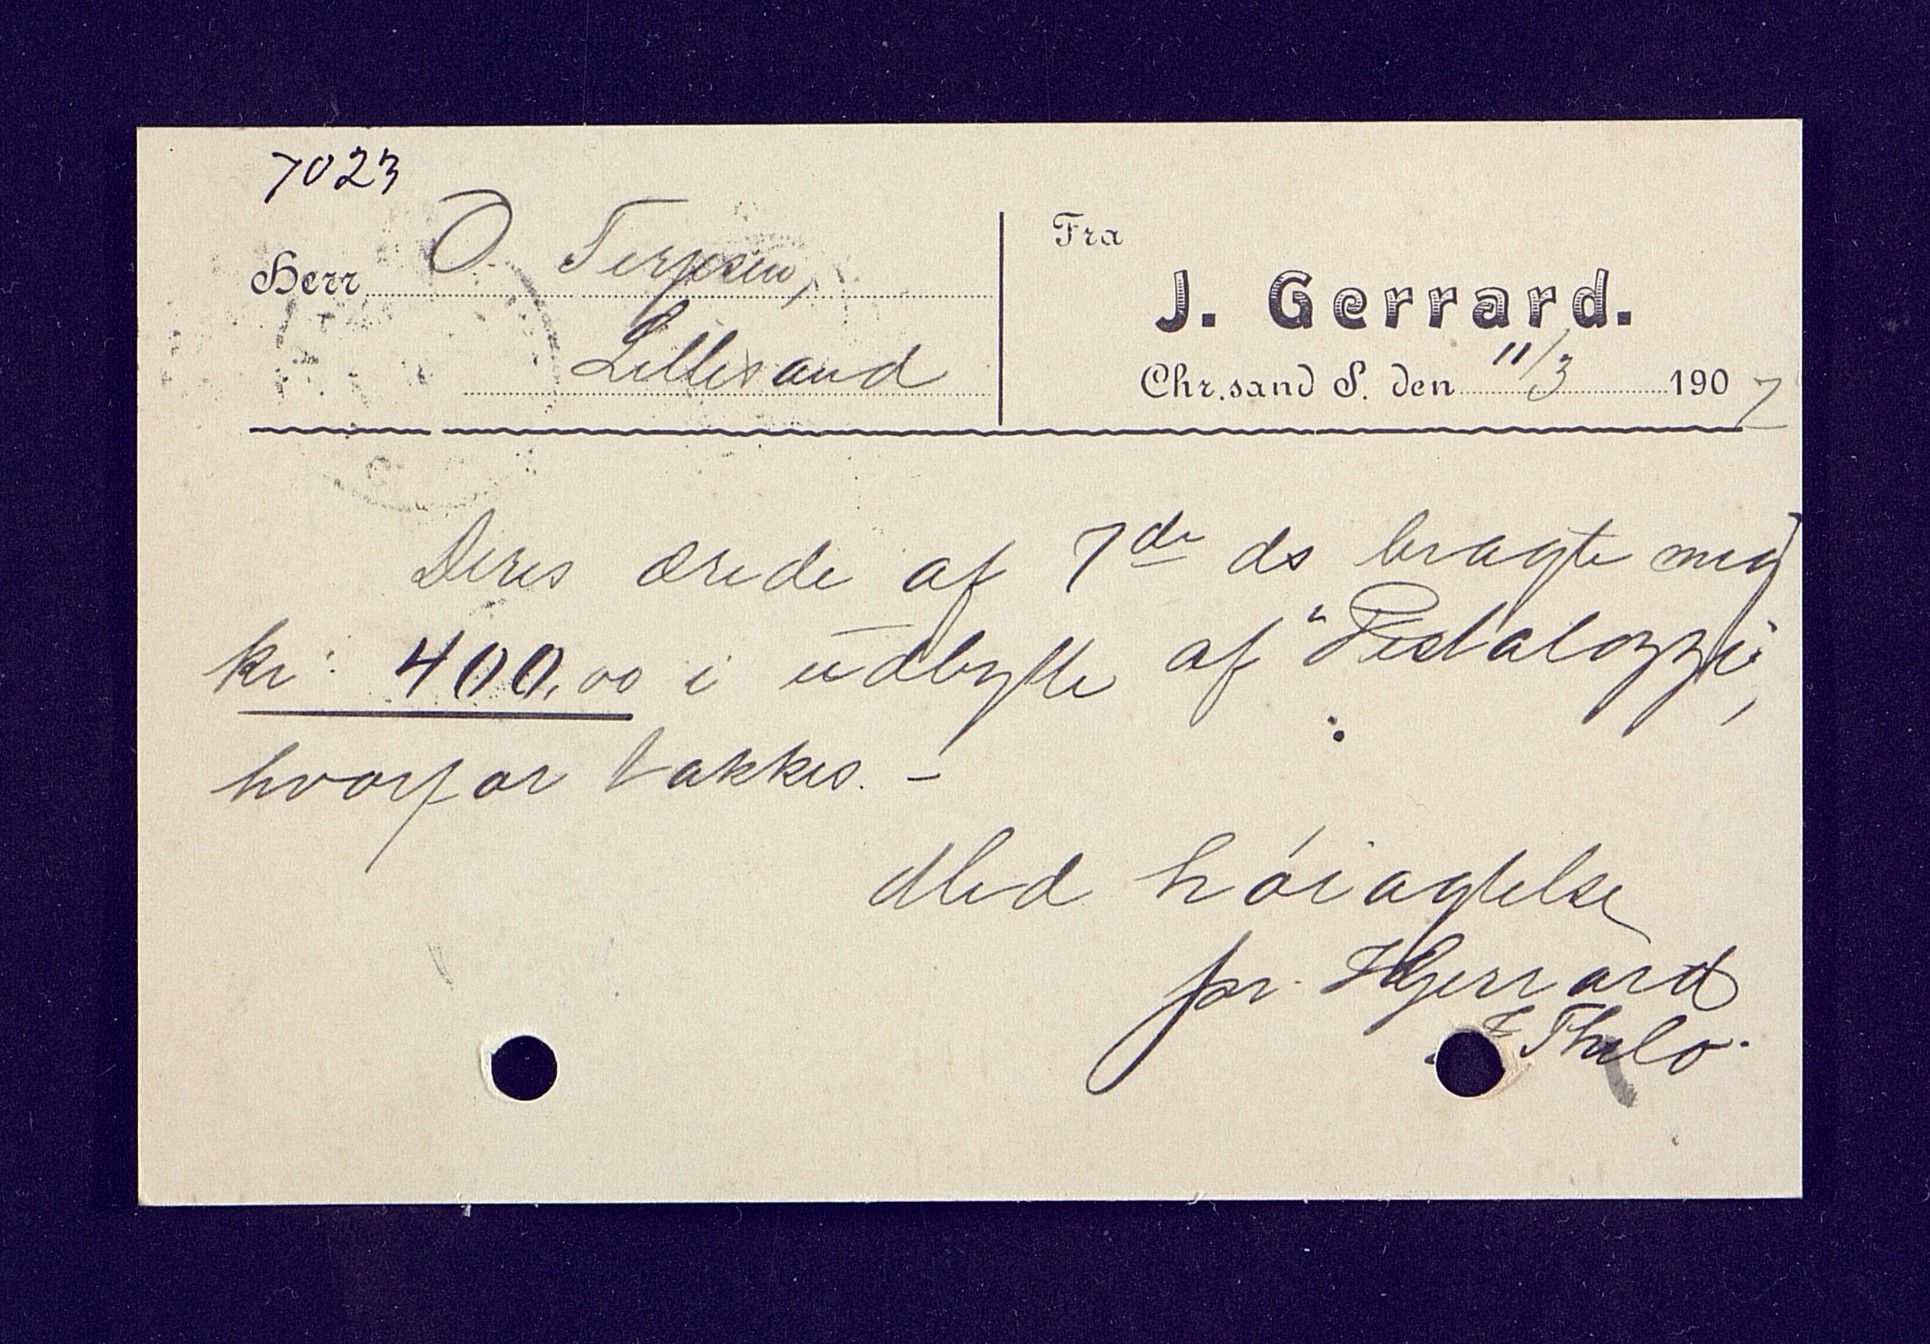 7023
Herr O. Terjesen,
Lillesand
Fra
J. Gerrard.
Chr.sand S. den 11/3 1907
Deres ærede af 7de ds bragte mig
kr: 400,00 i udbytte af "Pestalozzi",
hvorfor takkes. -
Med høiagtelse
pr. J Gerrard
Thilo.